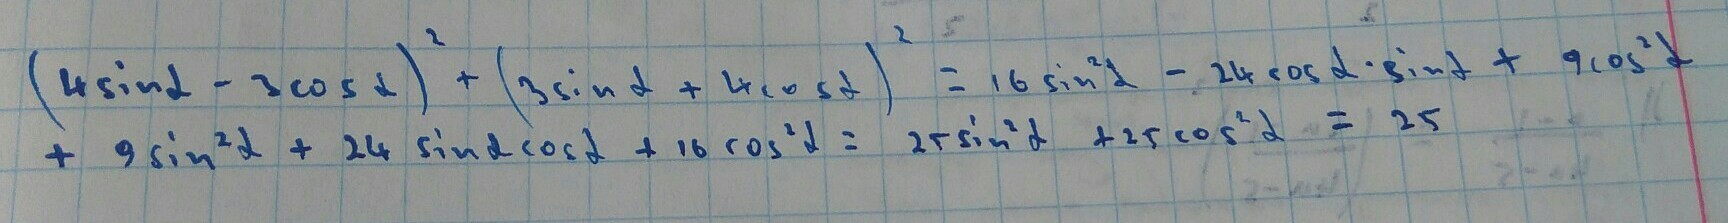 (4sinα - 3cosα)² + (3sinα + 4cosα)² = 16sin²α - 24cosα·sinα + 9cos²α
+ 9sin²α + 24sinαcosα + 16cos²α = 25sin²α + 25cos²α = 25